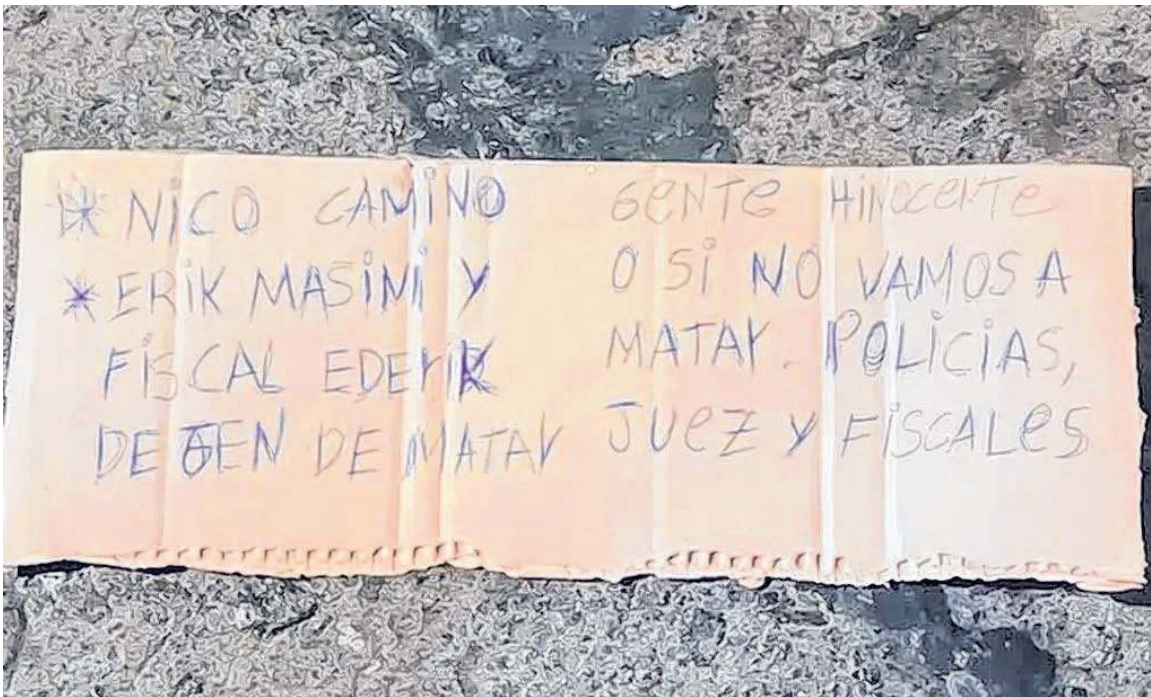 * NiCO CAMiNO
* ERiK MASiNi Y
FiSCAL EDERiK
DEGEN DE MATAR
GENTE HiNOCENTE
O Si NO VAMOS A
MATAR. POLiCiAS,
JUEZ Y FiSCALES